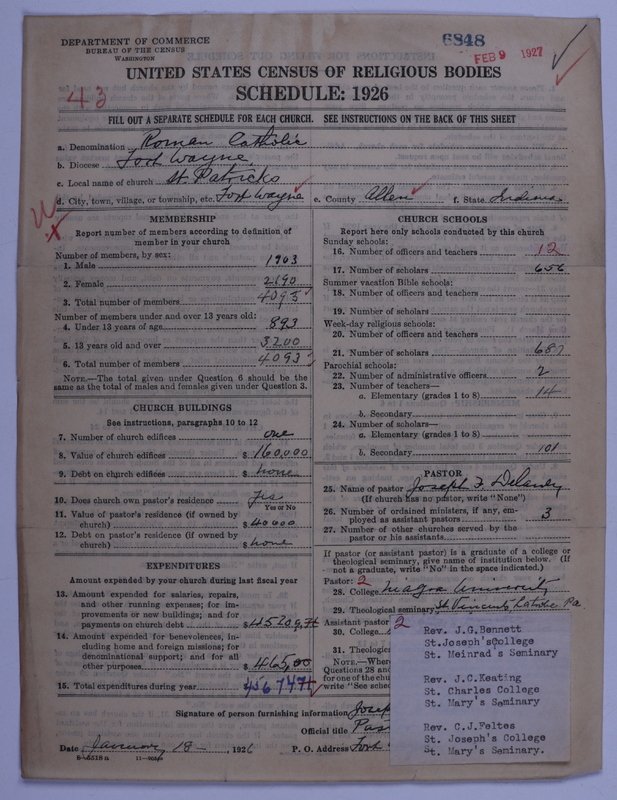 DEPARTMENT OF COMMERCE
BUREAU OF THE CENSUS
WASHINGTON
6848
FEB 9 1927
UNITED STATES CENSUS OF RELIGIOUS BODIES
SCHEDULE: 1926
43
FILL OUT A SEPARATE SCHEDULE FOR EACH CHURCH. SEE INSTRUCTIONS ON THE BACK OF THIS SHEET
a. Denomination Roman Catholic
b. Diocese Fort Wayne
c. Local name of church St. Patricks
d. City, town, village, or township, etc. Fort Wayne e. County Allen f. State Indiana
MEMBERSHIP
Report number of members according to definition of member in your church
Number of members, by sex:
1. Male 1903
2. Female 2190
3. Total number of members 4093
Number of members under and over 13 years old:
4. Under 13 years of age 893
5. 13 years old and over 3200
6. Total number of members 4093
NOTE.—The total given under Question 6 should be the same as the total of males and females given under Question 3.
CHURCH BUILDINGS
See instructions, paragraphs 10 to 12
7. Number of church edifices one
8. Value of church edifices $ 160,000
9. Debt on church edifices $ none
10. Does church own pastor's residence yes
Yes or No
11. Value of pastor's residence (if owned by church) $ 40000
12. Debt on pastor's residence (if owned by church) $ none
EXPENDITURES
Amount expended by your church during last fiscal year
13. Amount expended for salaries, repairs, and other running expenses; for improvements or new buildings; and for payments on church debt $ 45209.71
14. Amount expended for benevolences, including home and foreign missions; for denominational support; and for all other purposes $ 465.00
15. Total expenditures during year $ 45674.71
CHURCH SCHOOLS
Report here only schools conducted by this church
Sunday schools:
16. Number of officers and teachers 12
17. Number of scholars 656
Summer vacation Bible schools:
18. Number of officers and teachers
19. Number of scholars
Week-day religious schools:
20. Number of officers and teachers
21. Number of scholars 687
Parochial schools:
22. Number of administrative officers 2
23. Number of teachers—
a. Elementary (grades 1 to 8) 14
b. Secondary
24. Number of scholars—
a. Elementary (grades 1 to 8)
b. Secondary 101
PASTOR
25. Name of pastor Joseph F Delaney
(If church has no pastor, write "None")
26. Number of ordained ministers, if any, employed as assistant pastors 3
27. Number of other churches served by the pastor or his assistants
If pastor (or assistant pastor) is a graduate of a college or theological seminary, give name of institution below. (If not a graduate, write "No" in the space indicated.)
Pastor: 2
28. College Niagra University
29. Theological seminary St Vincents, Latrobe Pa.
Assistant pastor 2
30. College
31. Theologic
NOTE.—Where
Questions 28 and
for one of the chu
write "See sched
Rev. J.G.Bennett
St.Joseph'sCollege
St. Meinrad's Seminary
Rev. J.C.Keating
St. Charles College
St. Mary's Seminary
Rev. C.J.Feltes
St. Joseph's College
St. Mary's Seminary.
Signature of person furnishing information Josep
Official title Pas
Date January 18 , 1926 P. O. Address Fort
8-5518a